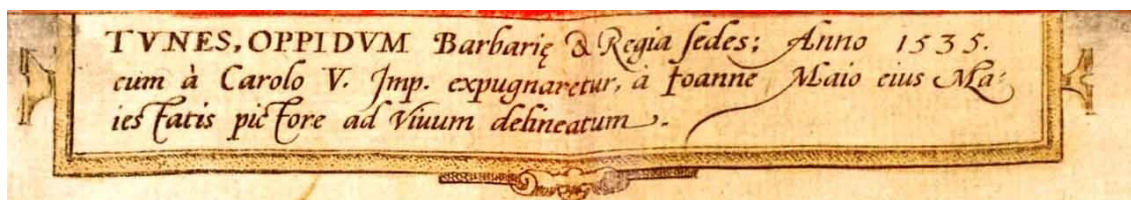 TVNES, OPPIDVM Barbarię & Regia sedes; Anno 1535.
cum à Carolo V. Imp. expugnaretur, à Ioanne Maio eius Ma-
iestatis pictore ad Viuum delineatum.